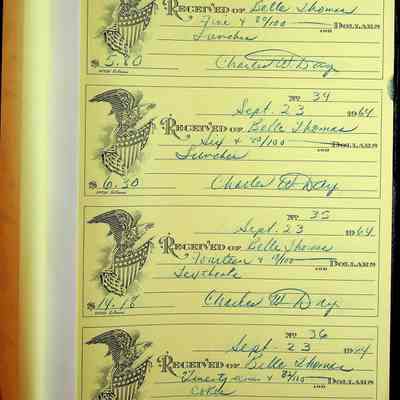 RECEIVED OF Belle Thomas
Five & 80/100 DOLLARS
Lunches
$5.80 Charles W. Day
No 34
Sept. 23 1964
RECEIVED OF Belle Thomas
Six & 30/100 DOLLARS
Lunches
$6.30 Charles W Day
No 35
Sept. 23 1964
RECEIVED OF Belle Thomas
Fourteen & 18/100 DOLLARS
Textbooks
$14.18 Charles W Day
No 36
Sept. 23 1964
RECEIVED OF Belle Thomas
DOLLARS
Cokes